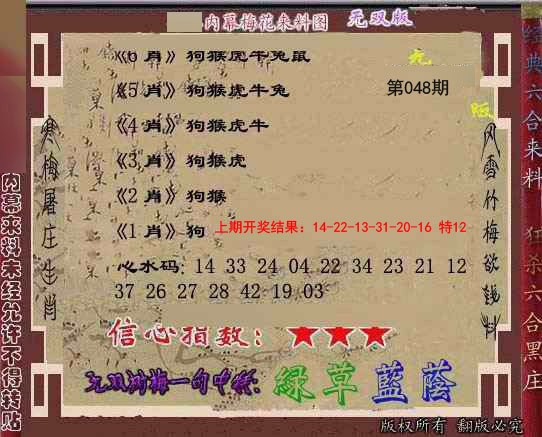 内幕梅花来料图 无双版
《6 肖》狗猴虎牛兔鼠
《5 肖》狗猴虎牛兔
第048期
《4 肖》狗猴虎牛
《3 肖》狗猴虎
《2 肖》狗猴
《1 肖》狗
上期开奖结果：14-22-13-31-20-16 特12
心水码: 14 33 24 04 22 34 23 21 12
37 26 27 28 42 19 03
信心指数: ★★★
绿草蓝荫
版权所有 翻版必究
寒梅屠庄生肖
风雪竹梅欲钱料
内幕来料未经允许不得转贴
经典六合来料
狂杀六合黑庄